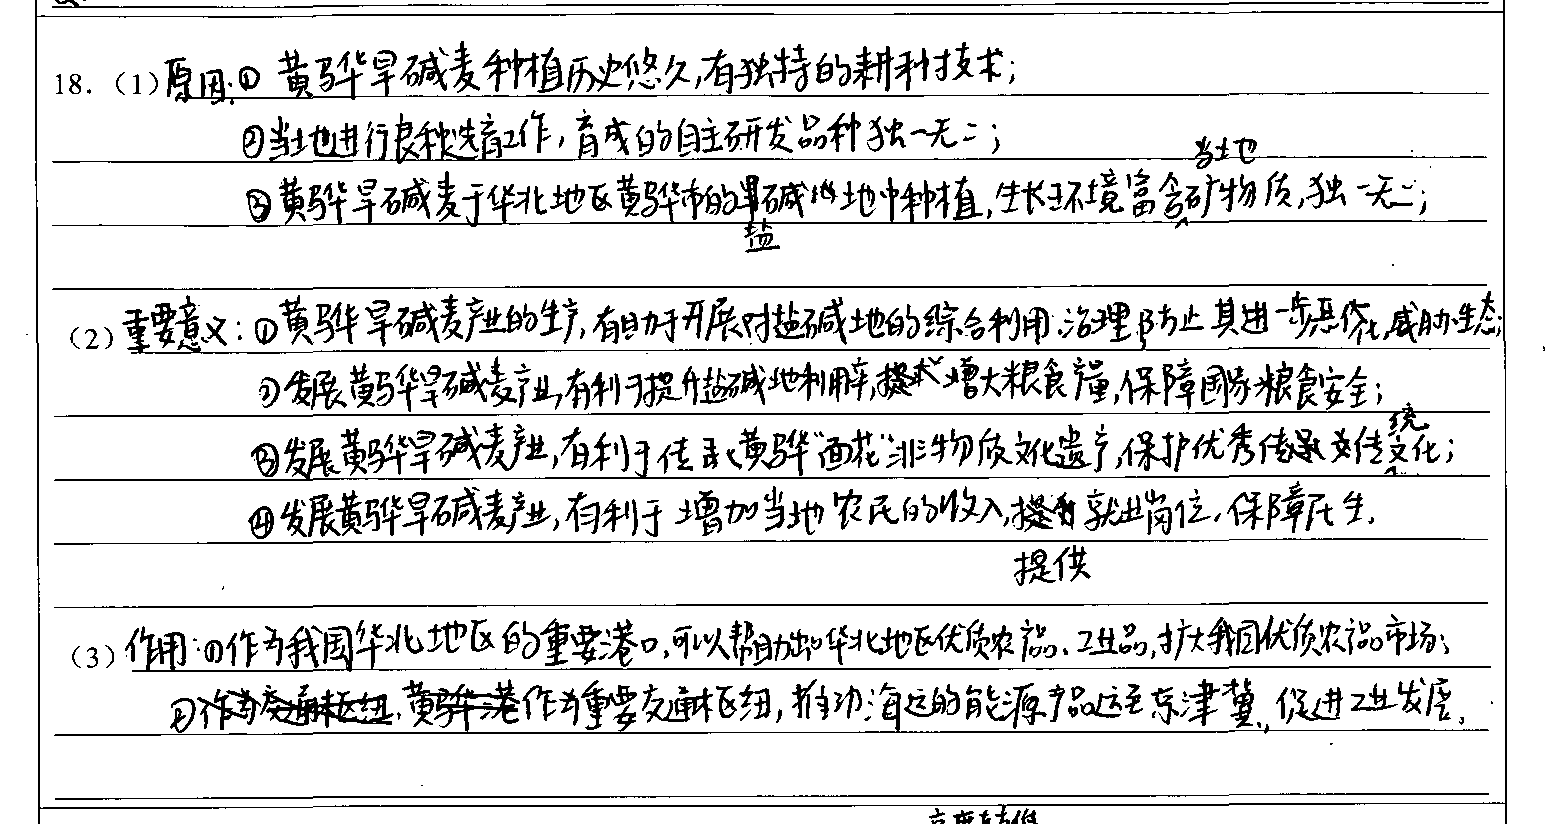 18.(1)原因:① 黄骅旱碱麦种植历史悠久,有独特的耕种技术;
②当地进行良种选育工作,育成的自主研发品种独一无二;
当地
③黄骅旱碱麦于华北地区黄骅市的碱地中种植,生长环境富含矿物质,独一无二;
盐
(2)重要意义:①黄骅旱碱麦产业的生产,有助于开展对盐碱地的综合利用、治理,防止其进一步恶化,威胁生态;
②发展黄骅旱碱麦产业,有利于提升盐碱地利用率,增大粮食产量,保障国家粮食安全;
统
③发展黄骅旱碱麦产业,有利于传承黄骅“面花”非物质文化遗产,保护优秀传文化;
④发展黄骅旱碱麦产业,有利于增加当地农民的收入,就业岗位,保障民生.
提供
(3)作用:①作为我国华北地区的重要港口,可以帮助出口华北地区优质农产品、工业品,扩大我国优质农产品市场;
②作为重要交通枢纽,推动海运的能源产品运至京津冀,促进工业发展.